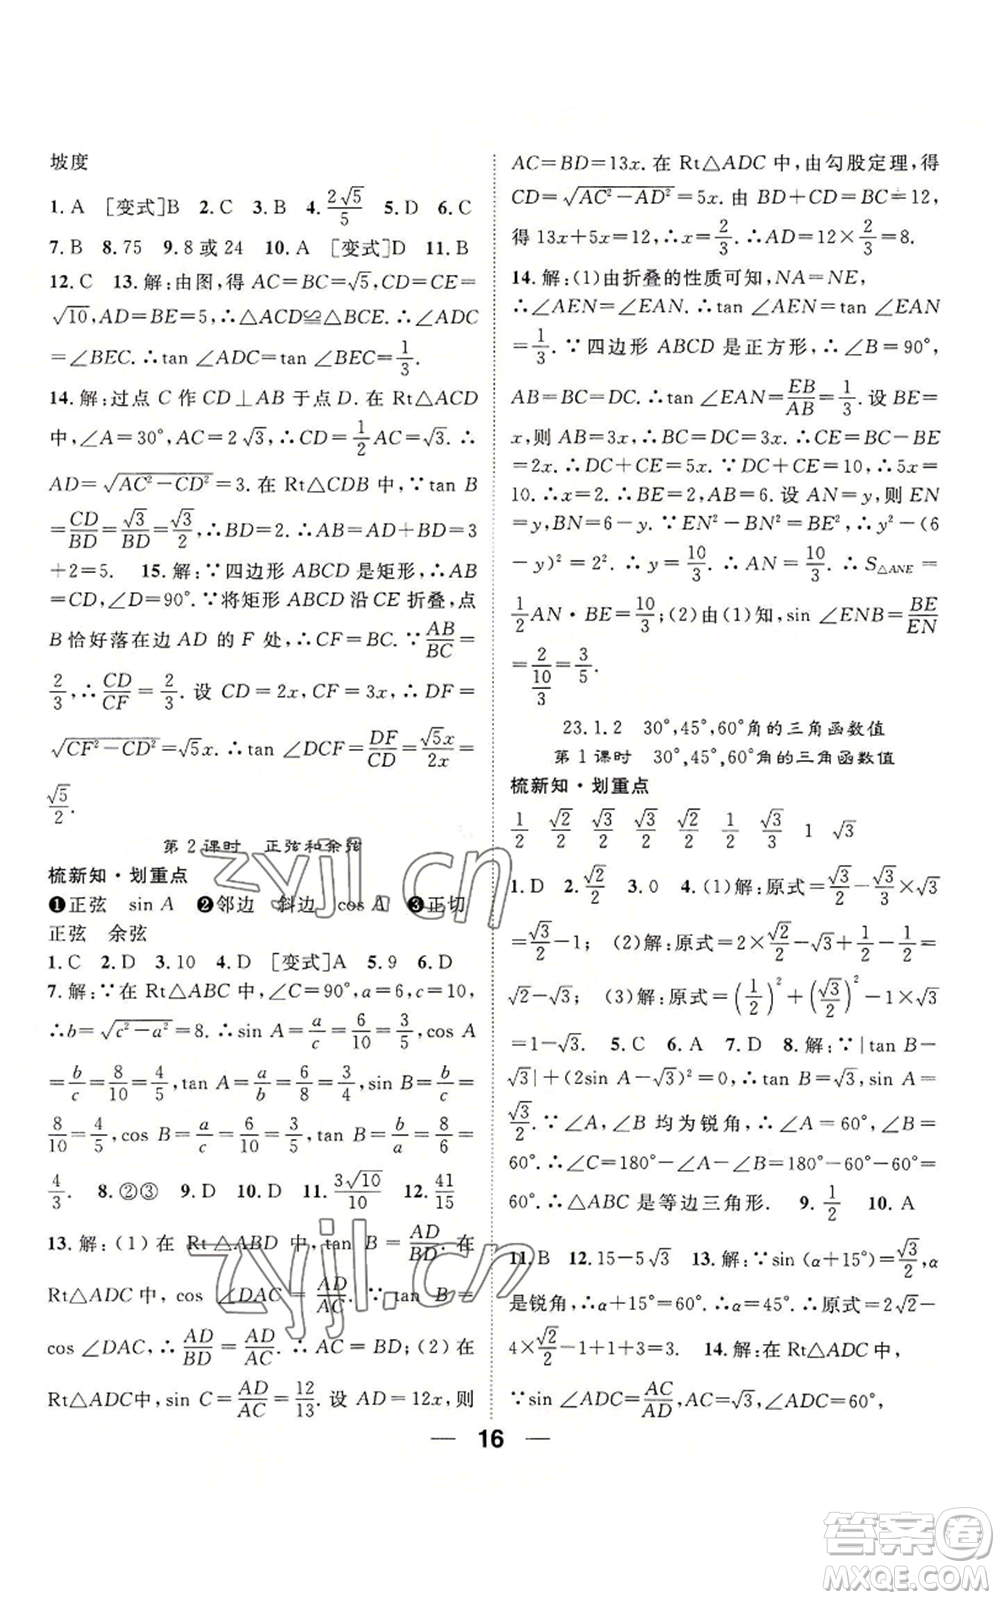 坡度
1.A [变式]B 2.C 3.B 4.2√5/5 5.D 6.C
7.B 8.75 9.8或24 10.A [变式]D 11.B
12.C 13.解:由图,得AC=BC=√5,CD=CE=
√10,AD=BE=5,∴△ACD≌△BCE.∴∠ADC
=∠BEC.∴tan∠ADC=tan∠BEC=1/3.
14.解:过点C作CD⊥AB于点D.在Rt△ACD
中,∠A=30°,AC=2√3,∴CD=1/2AC=√3.∴
AD=√(AC²-CD²)=3.在Rt△CDB中,∵tan B
=CD/BD=√3/BD=√3/2,∴BD=2.∴AB=AD+BD=3
+2=5. 15.解:∵四边形ABCD是矩形,∴AB
=CD,∠D=90°.∵将矩形ABCD沿CE折叠,点
B恰好落在边AD的F处,∴CF=BC.∵AB/BC=
2/3,∴CD/CF=2/3.设CD=2x,CF=3x,∴DF=
√(CF²-CD²)=√5x.∴tan∠DCF=DF/CD=√5x/2x=
√5/2.
第2课时 正弦和余弦
梳新知·划重点
❶正弦 sin A ❷邻边 斜边 cos A ❸正切
正弦 余弦
1.C 2.D 3.10 4.D [变式]A 5.9 6.D
7.解:∵在Rt△ABC中,∠C=90°,a=6,c=10,
∴b=√(c²-a²)=8.∴sin A=a/c=6/10=3/5,cos A
=b/c=8/10=4/5,tan A=a/b=6/8=3/4,sin B=b/c=
8/10=4/5,cos B=a/c=6/10=3/5,tan B=b/a=8/6=
4/3. 8.②③ 9.D 10.D 11.3√10/10 12.41/15
13.解:(1)在Rt△ABD中,tan B=AD/BD.在
Rt△ADC中,cos∠DAC=AD/AC.∵tan B=
cos∠DAC,∴AD/BD=AD/AC.∴AC=BD;(2)在
Rt△ADC中,sin C=AD/AC=12/13.设AD=12x,则
AC=BD=13x.在Rt△ADC中,由勾股定理,得
CD=√(AC²-AD²)=5x.由BD+CD=BC=12,
得13x+5x=12,∴x=2/3.∴AD=12×2/3=8.
14.解:(1)由折叠的性质可知,NA=NE,
∴∠AEN=∠EAN.∴tan∠AEN=tan∠EAN=
1/3.∵四边形ABCD是正方形,∴∠B=90°,
AB=BC=DC.∴tan∠EAN=EB/AB=1/3.设BE=
x,则AB=3x,∴BC=DC=3x.∴CE=BC-BE
=2x.∵DC+CE=5x,DC+CE=10,∴5x=
10.∴x=2.∴BE=2,AB=6.设AN=y,则EN
=y,BN=6-y.∵EN²-BN²=BE²,∴y²-(6
-y)²=2².∴y=10/3.∴AN=10/3.∴S△ANE=
1/2AN·BE=10/3;(2)由(1)知,sin∠ENB=BE/EN
=2/(10/3)=3/5.
23.1.2 30°,45°,60°角的三角函数值
第1课时 30°,45°,60°角的三角函数值
梳新知·划重点
1/2 √3/2 √3/3 √2/2 √2/2 1 √3/2 1/2 √3
1.D 2.√2/2 3.0 4.(1)解:原式=1/2×√3
=√3/2-1; (2)解:原式=2×√2/2+1/2-1/2=
√2-√3; (3)解:原式=(1/2)²+(√3/2)²-1×√3
=1-√3. 5.C 6.A 7.D 8.解:∵|tan B-
√3|+(2sin A-√3)²=0,∴tan B=√3,sin A=
√3/2.∵∠A,∠B均为锐角,∴∠A=60°,∠B=
60°.∴∠C=180°-∠A-∠B=180°-60°-60°=
60°.∴△ABC是等边三角形. 9.1/2 10.A
11.B 12.15-5√3 13.解:∵sin(α+15°)=√3/2,α
是锐角,∴α+15°=60°.∴α=45°.∴原式=2√2-
4×√2/2-1+1+3=3. 14.解:在Rt△ADC中,
∵sin∠ADC=AC/AD,AC=√3,∴∠ADC=60°,
16
zyjl.cn
zyjl.cn
答案圈
MXQE.COM